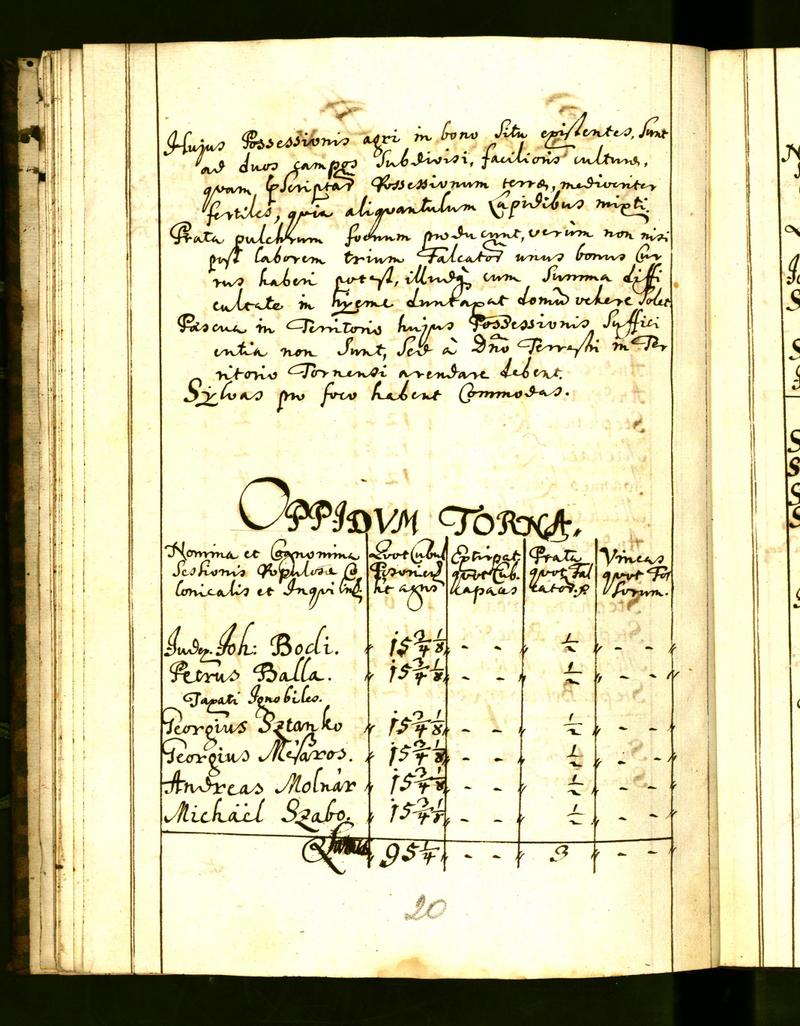 Hujus Possessionis agri in bono Situ existentes, Sunt
ad duos campos Subdivisi, facilioris culturæ,
quam Possessionum terræ, mediocriter
fertiles, quia aliquantulum Lapidibus mixti.
Prata pulchrum foenum producunt, verùm non nisi
post laborem trium Falcatorũ unus bonus Cur
rus haberi potest, illudq̃ cum Summa diffi
cultate in hyeme duntaxat domũ vehere Solet
Pascua in Territorio hujus Possessionis Suffici
entia non Sunt, Sed à Dño Terrestri in Ter
ritorio Tornensi arendare debent.
Sylvas pro foco habent Commodas.
OPPIDVM TORNA.
Nomina et Cognomina
Sessionis Populosæ Co
lonicalis et Inquilin.
Quot Cubul
Posonien
agri
Extirpat
quot Cub.
capaces
Prata
quot Fal
cator.
Vineas
quot Fos
sorum.
Judex Joh: Bodi. " 15 3/4 1/8 " - - " 1/2 " - - "
Petrus Balla. " 15 3/4 1/8 " - - " 1/2 " - - "
Taxati Ignobiles.
Georgius Sztanko " 15 3/4 1/8 " - - " 1/2 " - - "
Georgius Mészáros. " 15 3/4 1/8 " - - " 1/2 " - - "
Andreas Molnár " 15 3/4 1/8 " - - " 1/2 " - - "
Michäel Szabo. " 15 3/4 1/8 " - - " 1/2 " - - "
Latus " 95 1/4 " - - " 3 " - - "
20